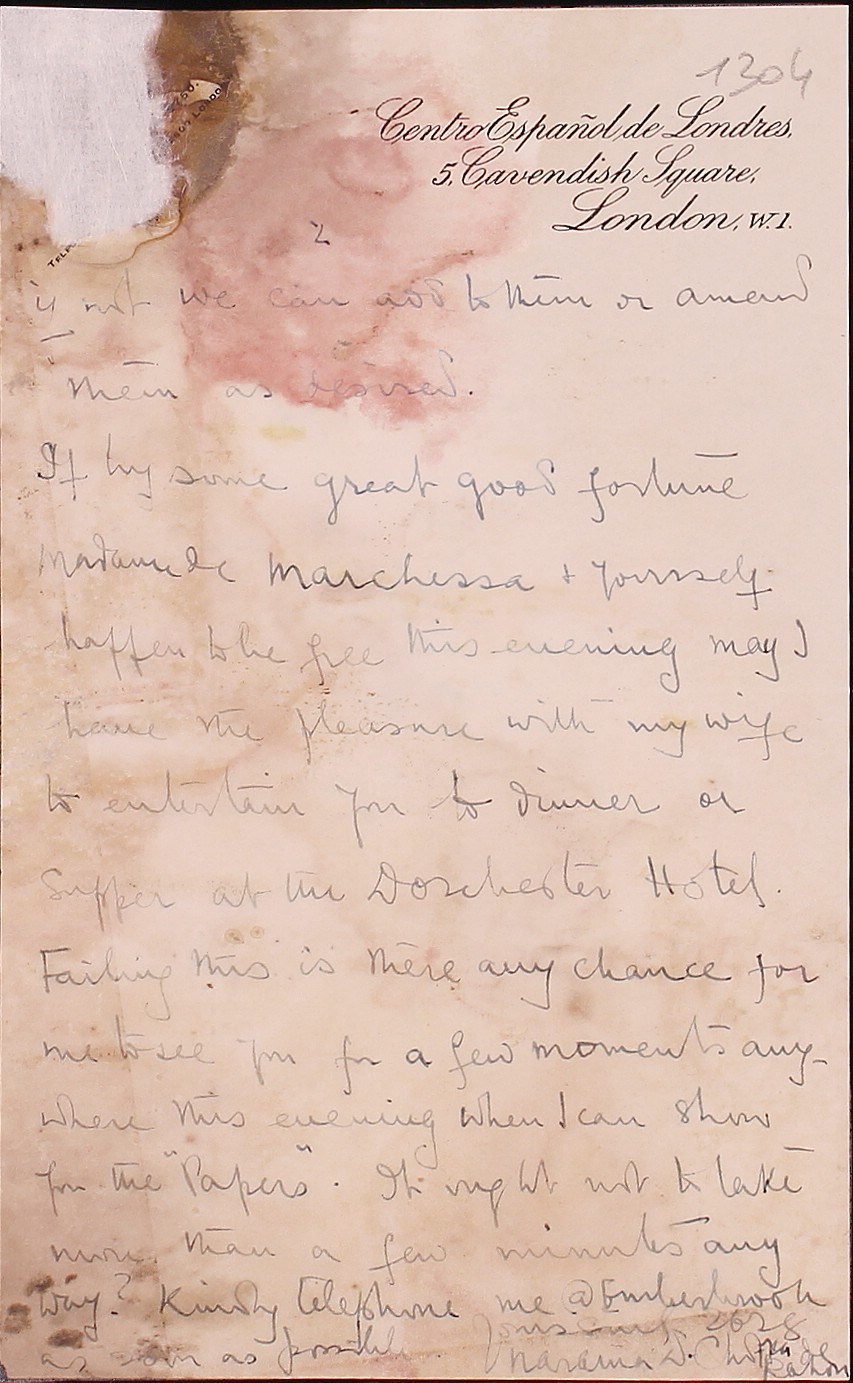 1304
Centro Español de Londres.
5, Cavendish Square,
London, W.1.
2
if not we can add to them or amend
them as desired.
If by some great good fortune
Madame de Marchessa & yourself
happen to be free this evening may I
have the pleasure with my wife
to entertain you to dinner or
Supper at the Dorchester Hotel.
Failing this is there any chance for
me to see you for a few moments any-
where this evening when I can show
you the "Papers". It ought not to take
more than a few minutes any
way? Kindly telephone me @ Emberbrook
2628
as soon as possible. Yours